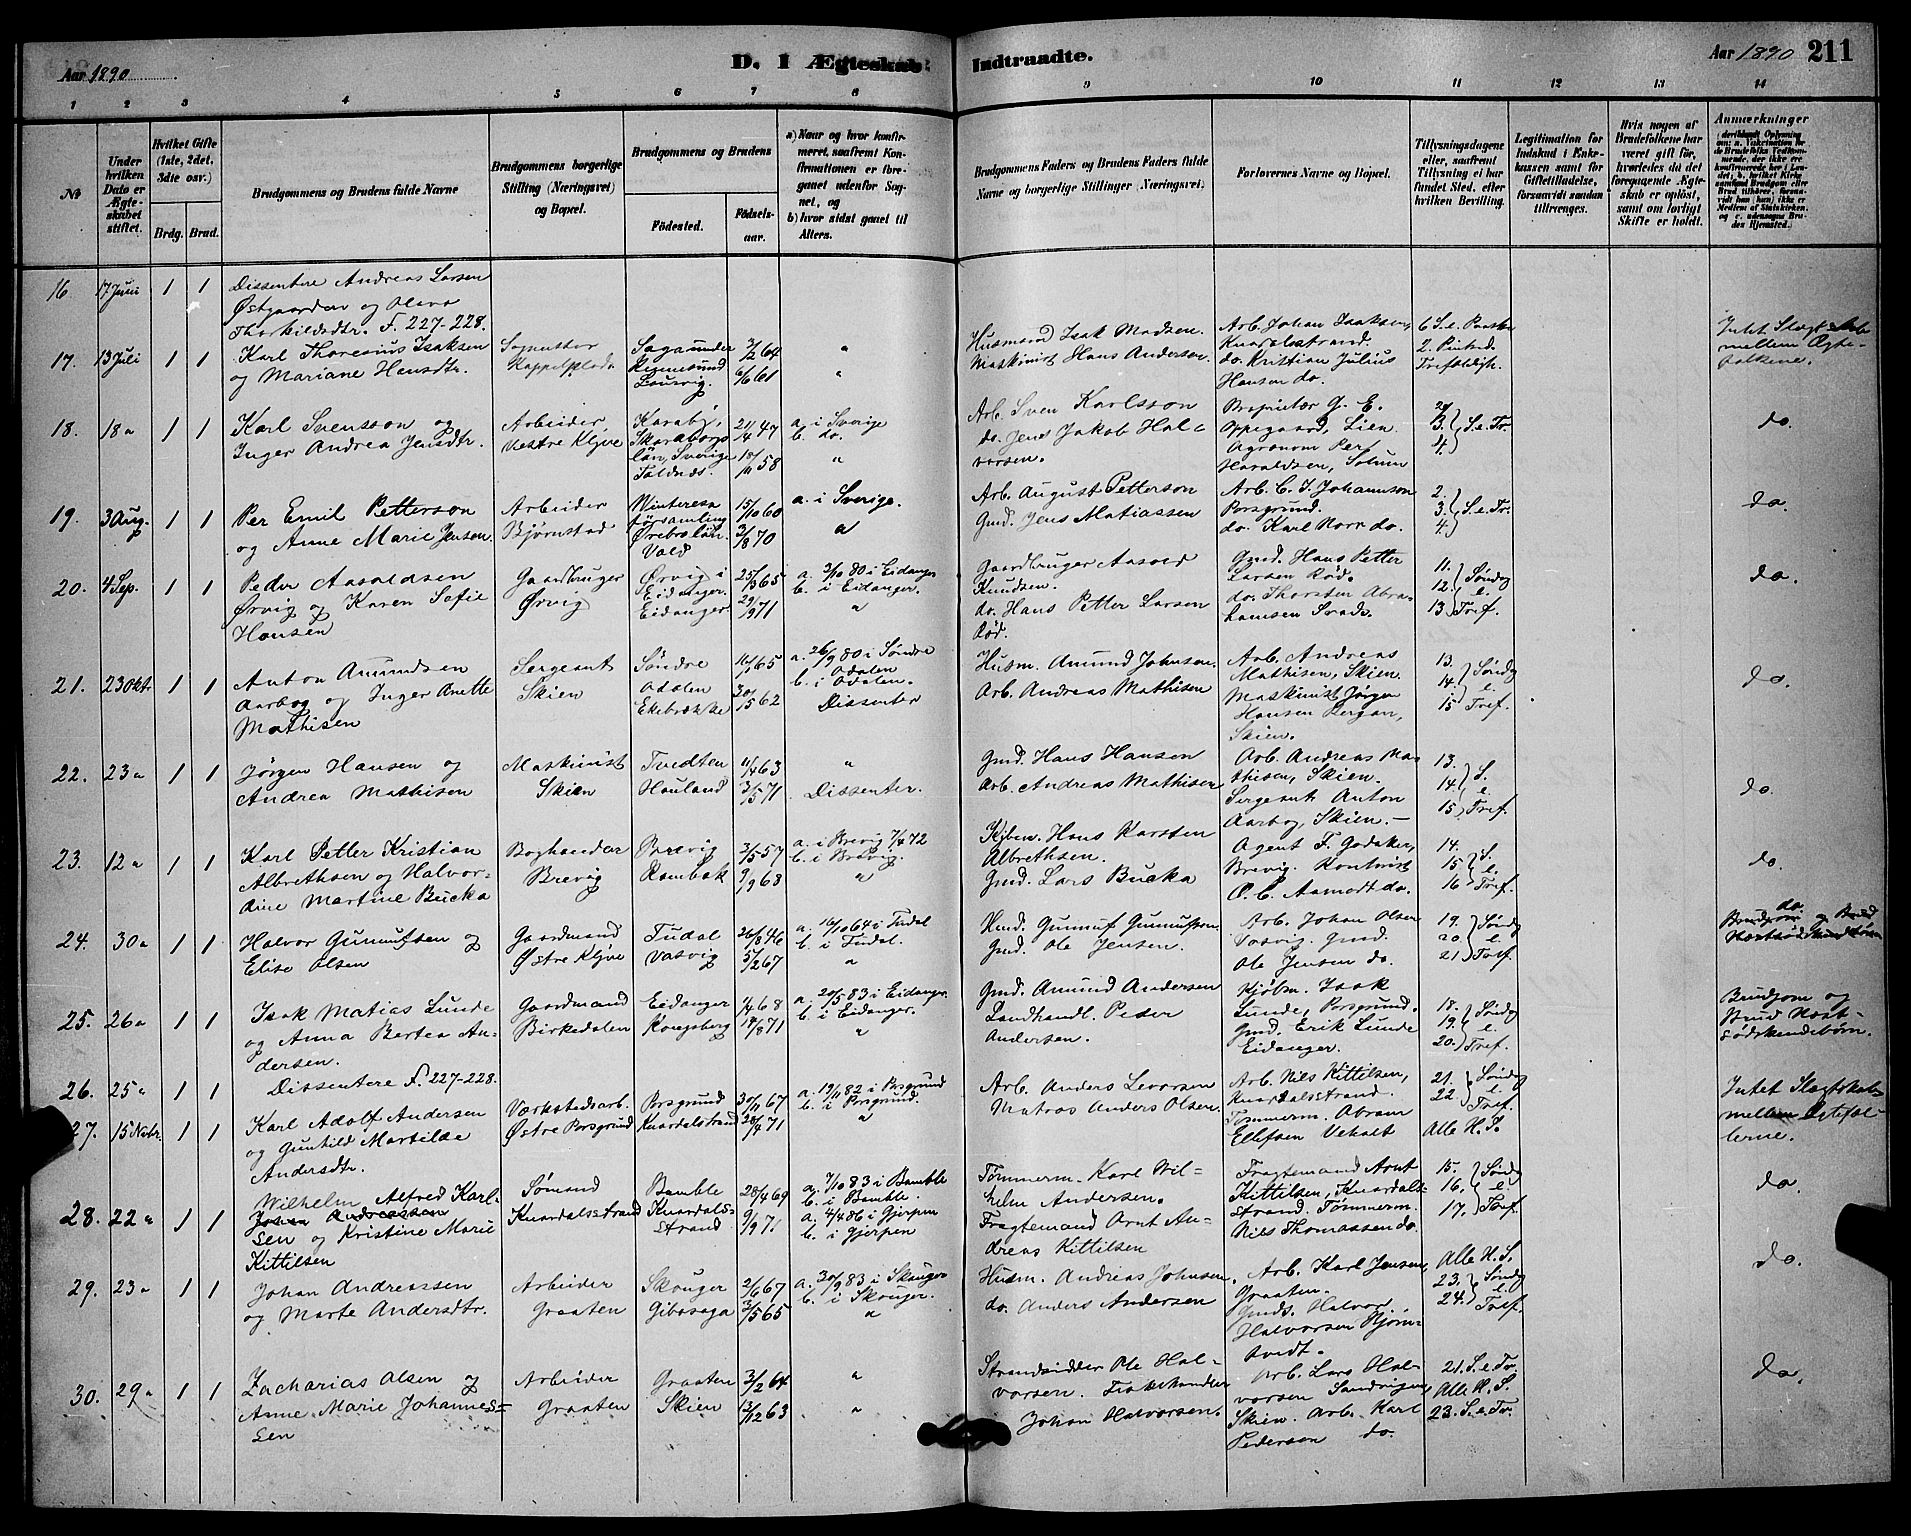 Aar 1890
D. I Ægteskab
Indtraadte.
Aar 1890 211
1 2 3 4 5 6 7 8 9 10 11 12 13 14
№
Under hvilken Dato er Ægteskabet stiftet.
Hvilket Gifte (1ste, 2det, 3die osv.)
Brdg. Brud.
Brudgommens og Brudens fulde Navne
Brudgommens borgerlige Stilling (Næringsvei) og Bopæl.
Brudgommens og Brudens
Födested.
Födselsaar.
a) Naar og hvor konfirmeret, saafremt Konfirmationen er foregaaet udenfor Sognet, og
b) hvor sidst gaaet til Alters.
Brudgommens Faders og Brudens Faders fulde Navne og borgerlige Stillinger (Næringsvei)
Forlovernes Navne og Bopæl.
Tillysningsdagene eller, saafremt Tillysning ei har fundet Sted, efter hvilken Bevilling.
Legitimation for Indskud i Enkekassen samt for Giftetilladelse, forsaavidt saadan tiltrænges.
Hvis nogen af Brudefolkene har været gift för, hvorledes da det foregaaende Ægteskab er oplöst, samt om lovligt Skifte er holdt.
Anmærkninger
16. 17 Juni 1 1 Dissentere Andreas Larsen
Østgaarden og Olava
Thorkildsdtr. F. 227-228.
17. 13 Juli 1 1 Karl Thoresius Isaksen
og Mariane Hansdtr.
3/2 64
6/6 61
Husmand Isak Madsen.
Maskinist Hans Andersen.
Arb. Johan Isaksen,
Knardalsstrand.
do. Kristian Julius
Hansen do.
6 S. e. Paaske
2. Pintsed.
Trefoldigh.
Intet Slægtskab
mellem Ægtefolkene.
18. 18 " 1 1 Karl Svensson og
Inger Andrea Jensdtr.
Arbeider,
Vestre Klyve
Karaby,
Skaraborgs
län, Sverige
21/4 47
18/11 58
a. i Sverige
b. do.
"
Arb. Sven Karlsson
do. Jens Jakob Halvorsen.
Proprietær G. E.
Oppegaard, Lien.
Agronom Per
Haraldsen, Solum
2.
3. } S. e. Tr.
4.
do.
19. 3 Aug. 1 1 Per Emil Petterson
og Anne Marie Jensen.
Arbeider
Bjørnstad
Vinteresn
församling
Örebro län.
Vald
15/10 60
3/8 70
a. i Sverige.
"
Arb. August Petterson
Gmd. Jens Matiassen
Arb. C. J. Johannson
Porsgrund.
do. Karl Norr do.
2.
3. } S. e. Tr.
4.
do.
20. 4 Sep. 1 1 Peder Aasoldsen
Ørvig og Karen Sofie
Hansen
Gaardbruger
Ørvig
Ørvig i
Eidanger.
Eidanger
25/3 65
29/9 71
a. 3/10 80 i Eidanger
b. i Eidanger.
"
Gaardbruger Aasold
Knudsen.
do. Hans Petter Larsen
Rød.
Gmd. Hans Petter
Larsen Rød.
do. Thorsten Abrahamsen
11.
12. } Søndg e.
13 Tref.
do.
21. 23 Okt. 1 1 Anton Amundsen
Aarbog og Inger Anette
Mathisen
Sergeant
Skien
Søndre
Odalen
Ekebrække
a. 26/9 80 i Søndre
Odalen
b. i Odalen.
Dissenter
Husm. Amund Johnsen.
Arb. Andreas Mathisen
Arb. Andreas
Mathisen, Skien.
Maskinist Jørgen
Hansen Bergan,
Skien.
13.
14. } Søndg e.
15 Tref.
do.
22. 23 " 1 1 Jørgen Hansen og
Andrea Mathisen
Maskinist
Skien
Tvedten
Hauland
11/4 63
3/5 71
"
Dissenter.
Gmd. Hans Hansen
Arb. Andreas Mathisen
Arb. Andreas Mathisen, Skien.
Sergeant Anton
Aarbog, Skien. —
13.
14. } S. e.
15 Tref.
do.
23. 12 " 1 1 Karl Petter Kristian
Albrethsen og Halvordine Martine Bucka
Boghandler
Brevig
Brevig
Rambek
3/5 57
9/9 68
a. i Brevig 7/4 72
b. i Brevig.
"
Kjbm. Hans Karsten
Albrethsen.
Gmd. Lars Bucka
Agent F. Godaker,
Brevig. Kontorist
O. C. Aamodt do.
14.
15 } S. e.
16 Tref.
do.
24. 30 " 1 1 Halvor Gunnufsen og
Elise Olsen
Gaardmand
Østre Klyve
Tudal
Vasvig
26/8 46
5/2 67
a. 16/10 64 i Tudal
b. i Tudal.
"
Gmd. Gunnuf Gunnufson.
Gmd. Ole Jensen.
Arb. Johan Olsen
Vasvig. Gmd.
Ole Jensen do.
19.
20 } Søndg e.
21 Tref.
do.
25. 26 " 1 1 Isak Matias Lunde
og Anna Bertea Andersen.
Gaardmand
Birkedalen
Eidanger
Kongsberg
1/4 68
14/8 71
a. 20/5 83 i Eidanger.
b. i Eidanger.
"
Gmd. Amund Andersen
Landhandl. Peder
Andersen.
Kjøbm. Isak
Lunde, Porsgrund.
Gmd. Erik Lunde
Eidanger.
18.
19. } Søndg e.
20. Tref.
Brudgom og
Brud Næstsødskendebørn.
26. 25 " 1 1 Dissentere F. 227-228.
27. 15 Novbr. 1 1 Karl Adolf Andersen
og Gunhild Martilde
Andersdtr.
Værkstedsarb.
Østre Porsgrund
Porsgrund
Knardalstrand
30/11 67
28/4 71
a. 19/11 82 i Porsgrund
b. i Porsgrund.
"
Arb. Anders Levorsen
Matros Anders Olsen.
Arb. Nils Kittilsen,
Knardalsstrand.
Tømmerm. Abram
Ellefsen Vehalt
21. } Søndg e.
22 Tref.
Alle H. S.
Intet Slægtskab
mellem Ægtefollerne.
28. 22 " 1 1 Wilhelm Alfred Karlsen og Kristine Marie
Kittilsen
Sømand
Knardalsstrand
Bamble
Knardalsstrand
28/4 69
9/9 71
a. 7/10 83 i Bamble
b. i Bamble.
a. 4/4 86 i Gjerpen
b. i Gjerpen
Tømmerm. Karl Wilhelm Andersen.
Fragtemand Arnt Andreas Kittilsen
Fragtemand Arnt
Kittilsen, Knardalsstrand. Tømmerm.
Nils Thomassen do.
15.
16. } Søndg e.
17. Tref.
do.
29. 23 " 1 1 Johan Andreassen
og Marte Andersdtr.
Arbeider
Graaten
Skouger
Gibosaga
2/6 67
3/5 65
a. 30/9 83 i Skouger
b. i Skouger.
"
Husm. Andreas Johnsen.
do. Anders Andersen
Arb. Karl Jensen,
Graaten.
Gmds. Halvor
Halvorsen Bjørntvedt.
Alle H. S.
23. } Søndg e.
24. Tref.
do.
30. 29 " 1 1 Zacharias Olsen og
Anne Marie Johannessen
Arbeider
Graaten
Graaten
Skien
3/2 64
13/12 63
"
"
Strandsidder Ole Halvorsen. Fiskehandler
Johan Halvorsen.
Arb. Lars Halvorsen Sandvigen,
Skien. Arb. Karl
Pedersen do.
21. S. e. Tr.
Alle H. S.
23. S. e. Tr.
do.